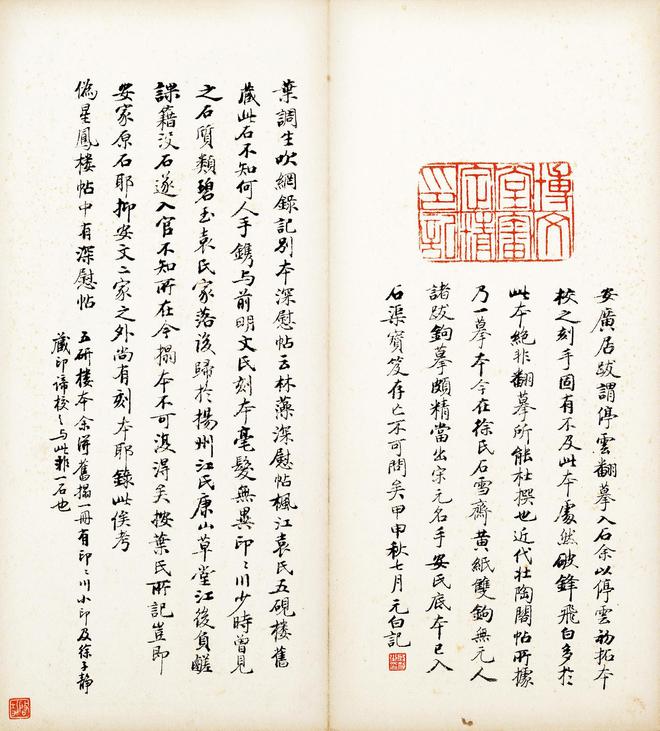 博文堂審定精印記
安廣居跋謂停雲翻摹入石余以停雲初拓本
校之刻手固有不及此本處然破鋒飛白多於
此本絕非翻摹所能杜撰也近代壯陶閣帖所據
乃一摹本今在徐氏石雪齋黃紙雙鉤無元人
諸跋鉤摹頗精當出宋元名手安氏底本已入
石渠寶笈存亡不可問矣甲申秋七月元白記
葉調生吹網錄記別本深慰帖云林藻深慰帖楓江袁氏五硯樓舊
藏此石不知何人手鐫与前明文氏刻本毫髮無異印〻川少時曾見
之石質類碧玉袁氏家落後歸於揚州江氏康山草堂江後負鹺
課籍没石遂入官不知所在今搨本不可復得矣按葉氏所記豈即
安家原石耶抑安文二家之外尚有刻本耶錄此俟考
偽星鳳樓帖中有深慰帖
五研樓本余得舊搨一冊有印〻川小印及徐子静
藏印諦校之与此非一石也